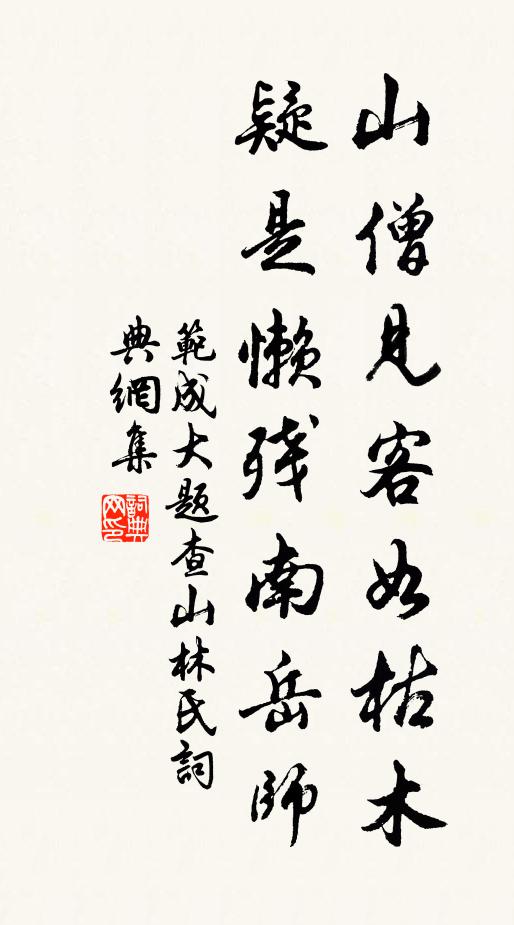 山僧見客如枯木
疑是懶残南岳師
範成大题查山林氏詞
典網集
詞典
网印